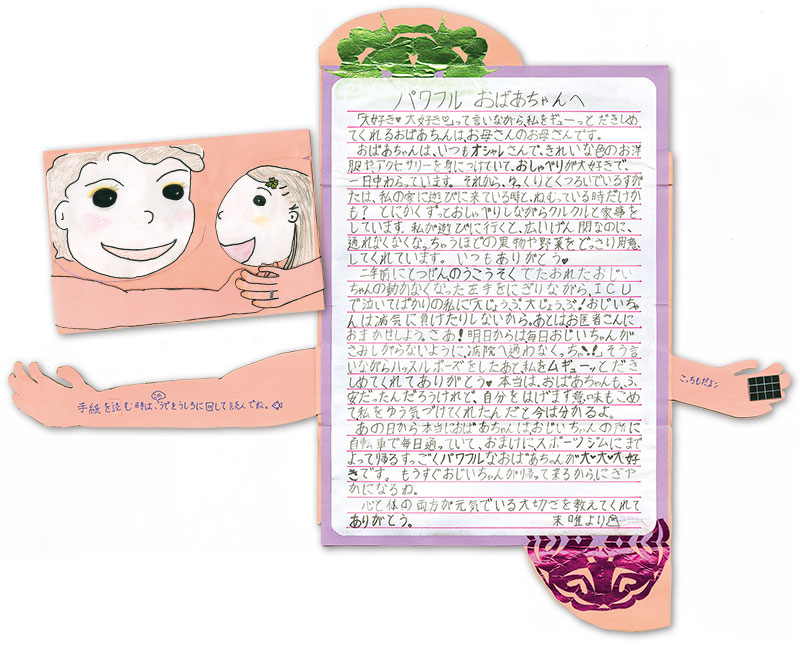 パワフル おばあちゃんへ
「大好き♥大好き♡」って言いながら、私をギューッとだきしめ
てくれるおばあちゃんは、お母さんのお母さんです。
おばあちゃんは、いつもオシャレさんで、きれいな色のお洋
服やアクセサリーを身につけていて、おしゃべりが大好きで、
一日中わらっています。それから、ゆっくりとくつろいでいるすが
たは、私の家に遊びに来ている時と、ねむっている時だけか
も？とにかくずっとおしゃべりしながらクルクルと家事を
しています。私が遊びに行くと、広いげん関なのに、
通れなくなくなっちゃうほどの果物や野菜をどっさり用意
してくれています。いつもありがとう♥
二年前にとつぜんのうこうそくでたおれたおじい
ちゃんの動かなくなった左手をにぎりながら、ICU
で泣いてばかりの私に「大じょうぶ大じょうぶ！おじいちゃ
んは病気に負けたりしないから。あとはお医者さんに
おまかせしよう。さあ！明日からは毎日おじいちゃんが
さみしがらないように、病院へ通わなくっちゃ!!」そう言
いながらハッスルポーズをしたあと私をムギューッとだき
しめてくれてありがとう♥本当は、おばあちゃんも、ふ
安だったんだろうけれど、自分をはげます意味もこめ
て私をゆう気づけてくれたんだと今は分かるよ。
あの日から本当におばあちゃんは、おじいちゃんの所に
自転車で毎日通っていて、おまけに、スポーツジムにまで
よって帰るすっごくパワフルなおばあちゃんが大♥大♥大好
きです。もうすぐおじいちゃんが帰って来るから、にぎや
かになるね。
心と体の両方が元気でいる大切さを教えてくれて
ありがとう。
末唯より
手紙を読む時は、うでをうしろに回して読んでね。
こっちもだよ